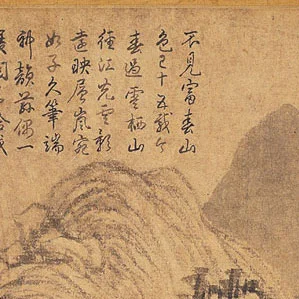 不見富春山
色已十五載今
春過雲栖山
径江光雲影
遠映層嵐宛
如子久筆端
神韻蘇偶一
展圖